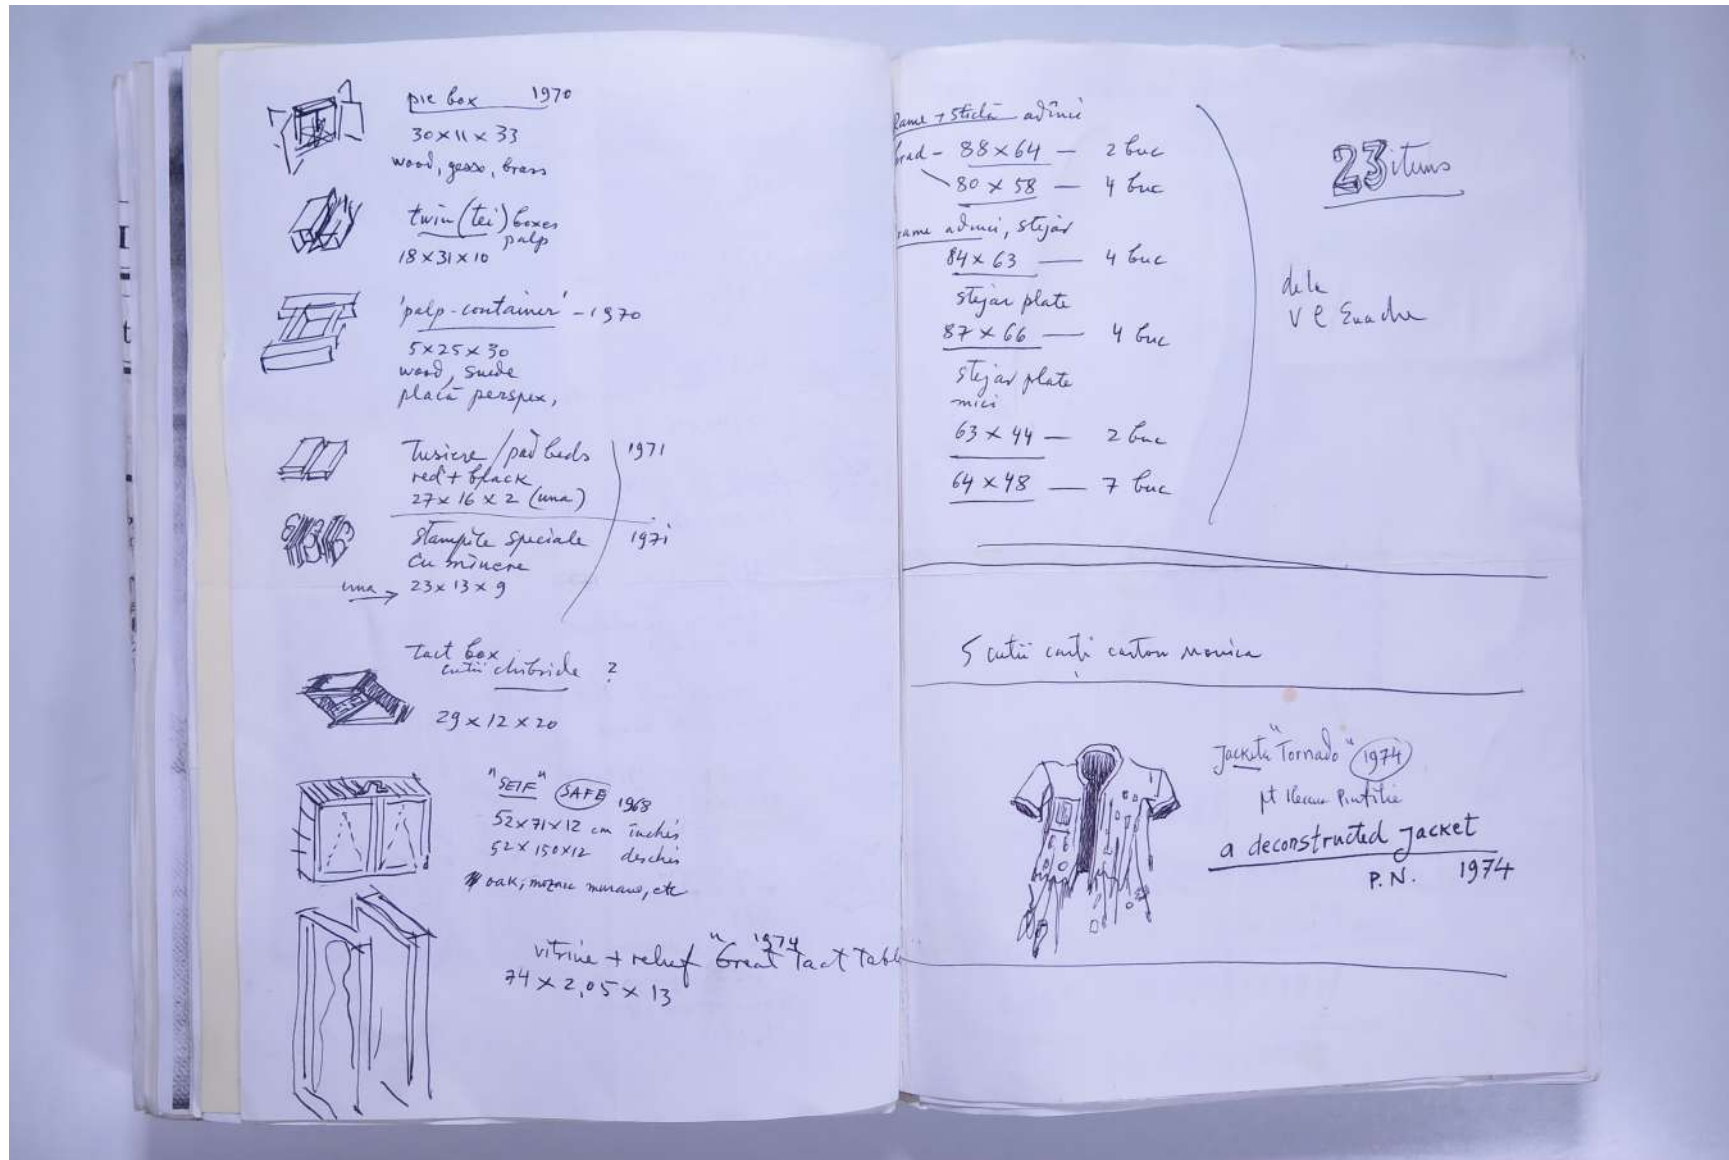 pic box 1970
30 x 11 x 33
wood, gesso, brass
twin (tei) boxes
palp
18 x 31 x 10
'palp-container' - 1970
5 x 25 x 30
wood, suede
placă perspex,
Tusiere / pad beds 1971
red + black
27 x 16 x 2 (una)
stampile speciale 1971
cu mînere
una → 23 x 13 x 9
Tact box
cutii chibride ?
29 x 12 x 20
"SEIF" SAFE 1968
52 x 71 x 12 cm închis
52 x 150 x 12 deschis
oak, mozaic murano, etc
vitrine + relief "Great Tact Table
1974
74 x 2,05 x 13
Rame + sticlă adînci
brad - 88 x 64 — 2 buc
80 x 58 — 4 buc
rame adînci, stejar
84 x 63 — 4 buc
stejar plate
87 x 66 — 4 buc
stejar plate
mici
63 x 44 — 2 buc
64 x 48 — 7 buc
23 items
de la
V C Enache
5 cutii cărți carton Monica
Jacheta "Tornado" 1974
pt Ileana Pintilie
a deconstructed Jacket
P.N. 1974